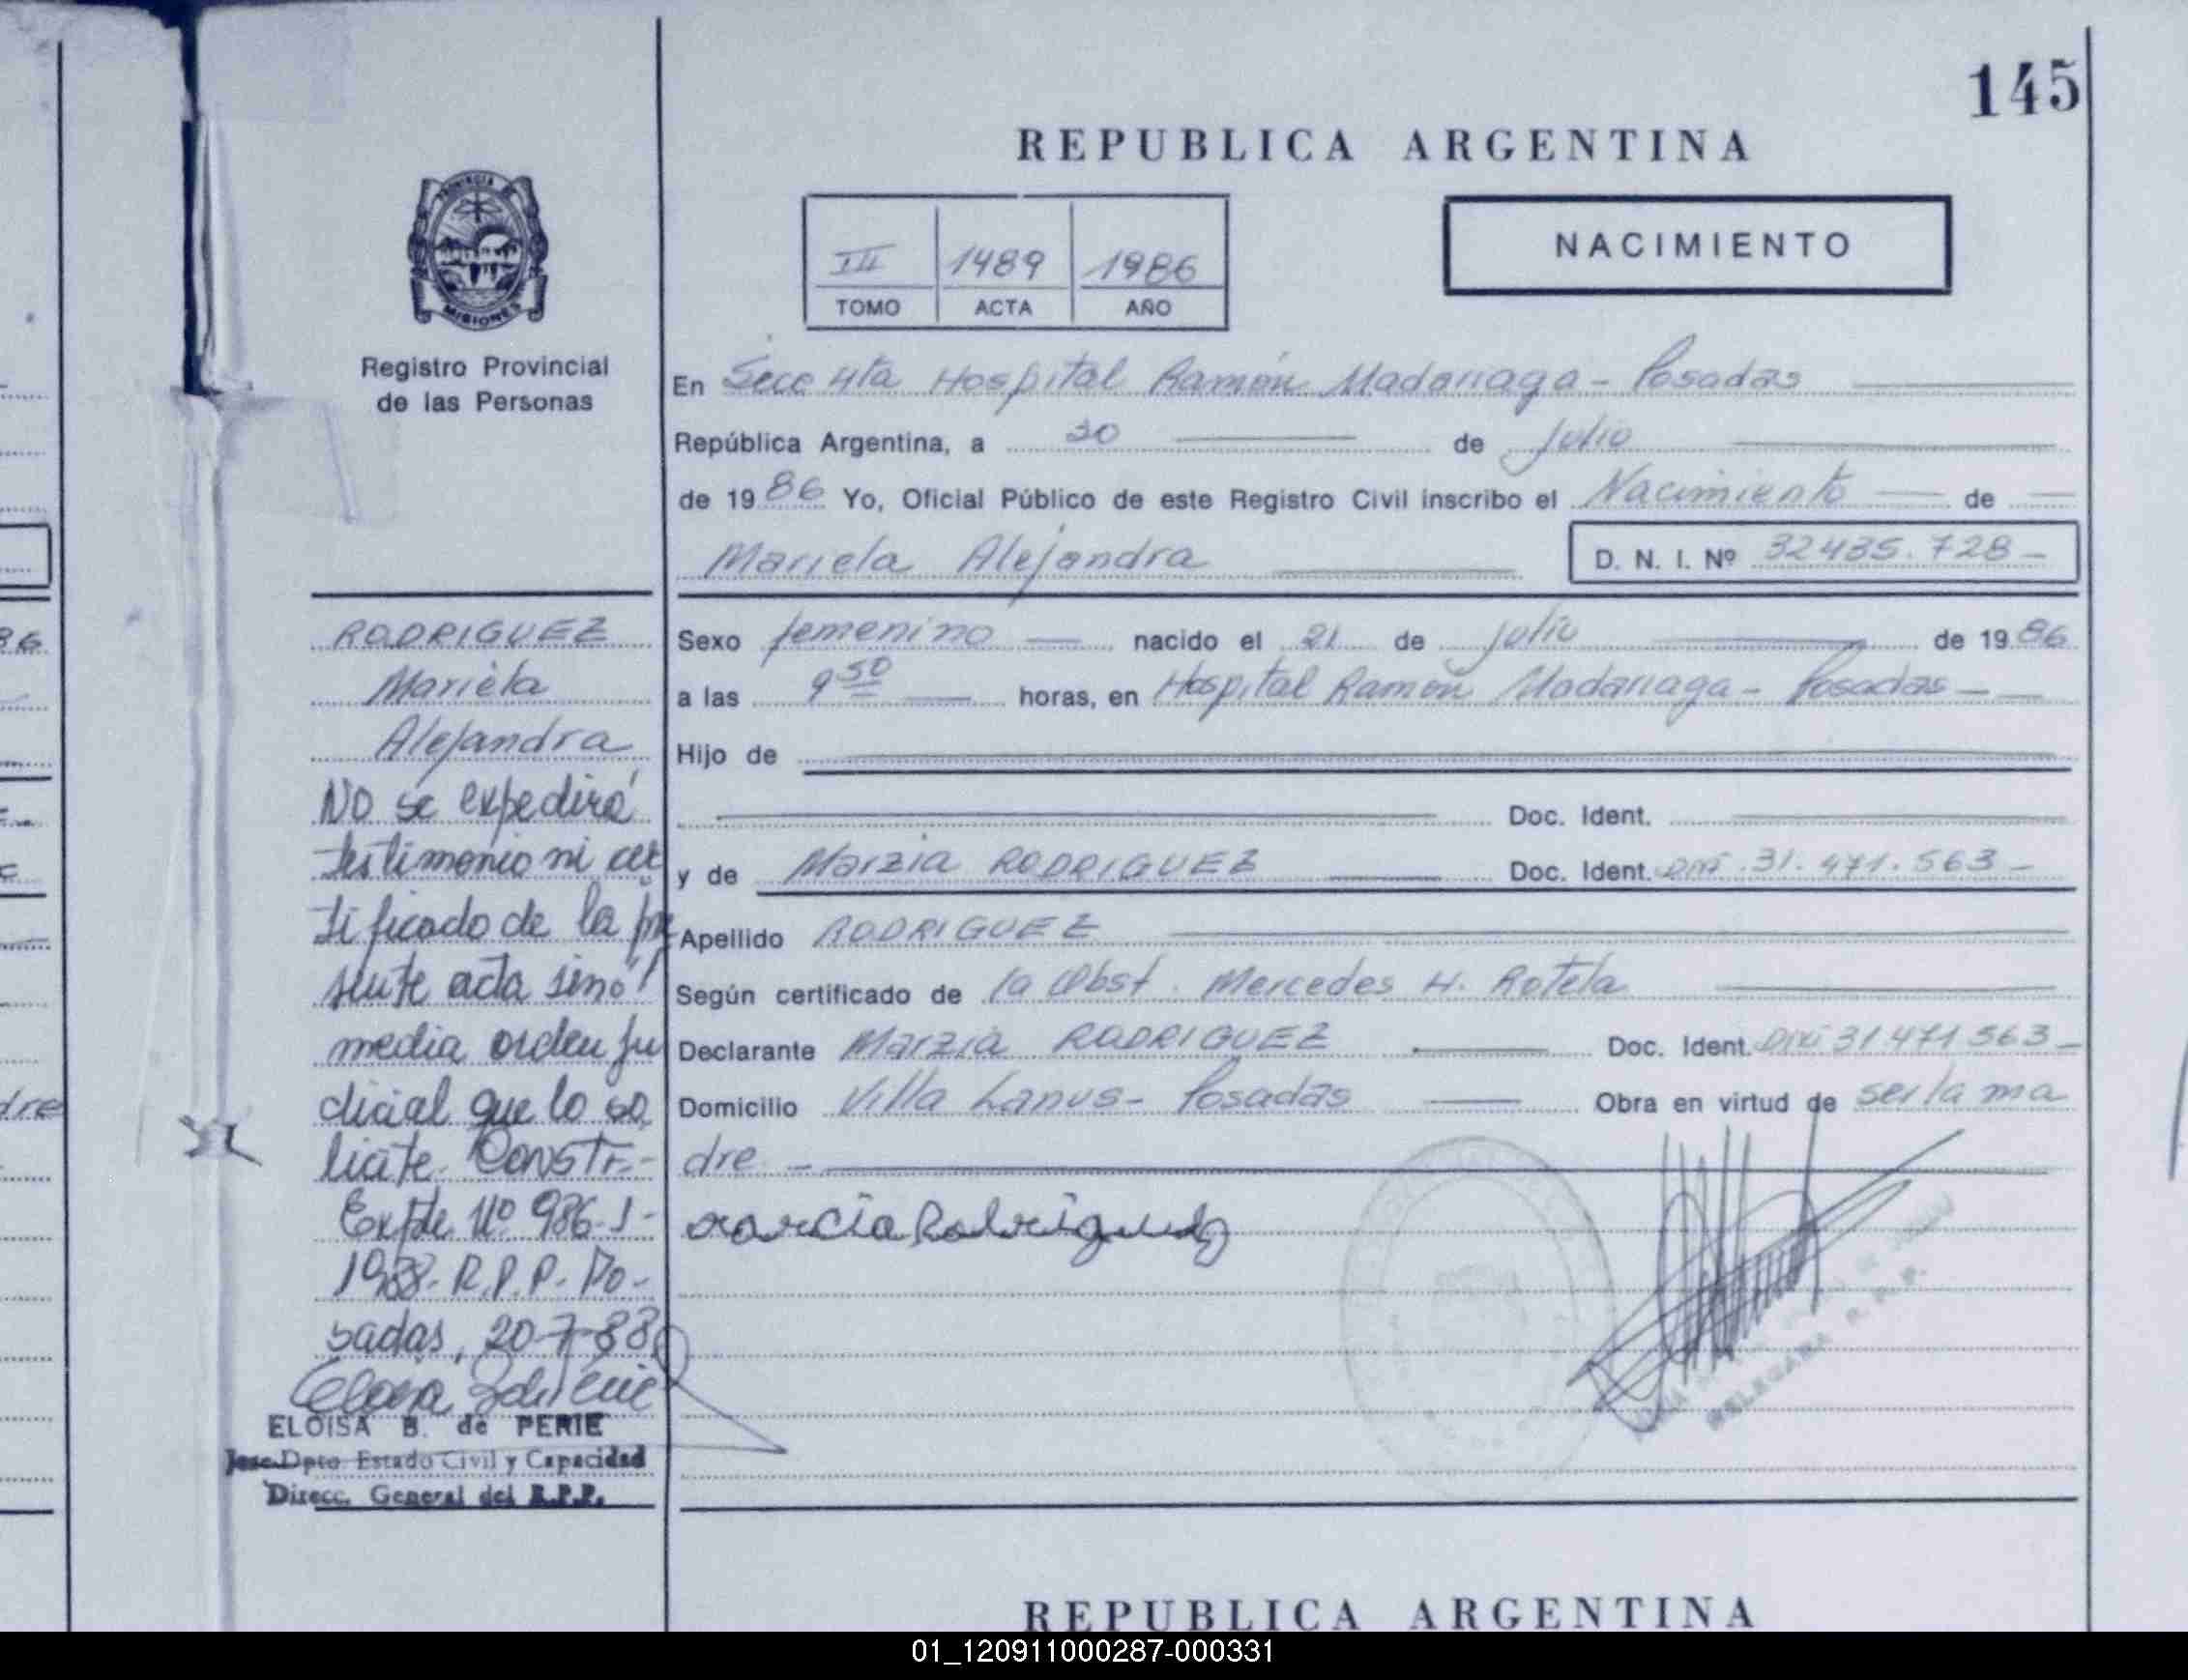 145
REPUBLICA ARGENTINA
PROVINCIA DE
MISIONES
Registro Provincial
de las Personas
III 1489 1986
TOMO ACTA AÑO
NACIMIENTO
En Secc 4ta Hospital Ramón Madariaga - Posadas
República Argentina, a 30 de Julio
de 1986 Yo, Oficial Público de este Registro Civil inscribo el Nacimiento de
Mariela Alejandra D. N. I. Nº 32435.728-
Sexo femenino nacido el 21 de julio de 1986
a las 9 50 horas, en Hospital Ramón Madariaga - Posadas -
Hijo de
Doc. Ident.
y de Marzia RODRIGUEZ Doc. Ident. DNI 31.471.563-
Apellido RODRIGUEZ
Según certificado de la Obst. Mercedes H. Rotela
Declarante Marzia RODRIGUEZ Doc. Ident. DNI 31471563-
Domicilio Villa Lanus- Posadas Obra en virtud de ser la ma
dre -
Marcia Rodriguez
RODRIGUEZ
Mariela
Alejandra
No se expedirá
testimonio ni cer
tificado de la pre
sente acta sinó
media orden ju
dicial que lo so
licite. Constr.-
Expte Nº 986-J-
1988- R.P.P. Po-
sadas, 20-7-88
ELOISA B. de PERIE
Jefe Dpto. Estado Civil y Capacidad
Direcc. General del R.P.P.
DELEGADA R. P. P.
REPUBLICA ARGENTINA
86
dre
01_120911000287-000331